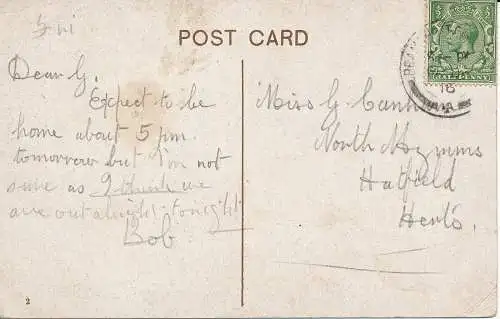 POST CARD
Dear G.
Expect to be
home about 5 pm
tomorrow but I'm not
sure as I think we
are out all night tonight
Bob
2
Miss G. Cann
North Mymms
Hatfield
Herts
HALFPENNY
16